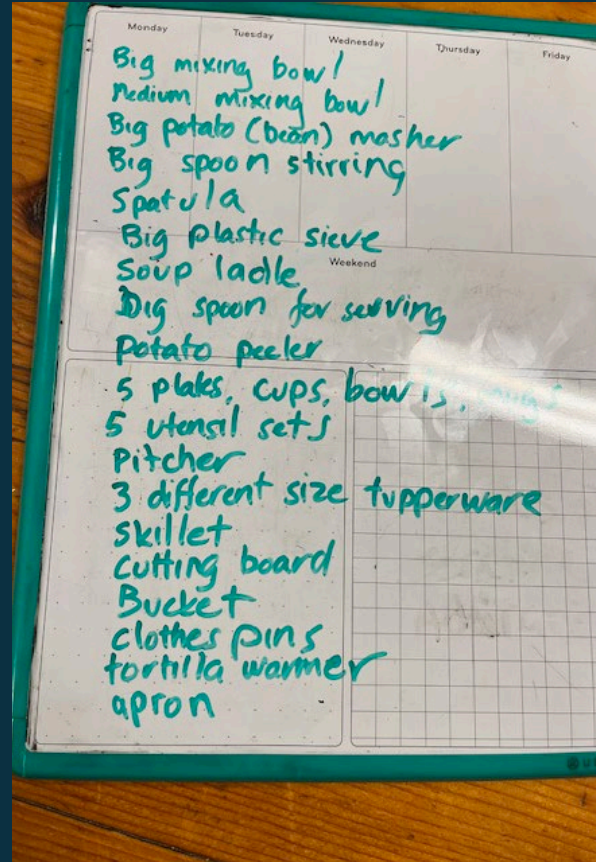 Monday Tuesday Wednesday Thursday Friday
Big mixing bowl
Medium mixing bowl
Big potato (bean) masher
Big spoon stirring
Spatula
Big plastic sieve
Weekend
Soup ladle
Big spoon for serving
Potato peeler
5 plates, cups, bowls, mugs
5 utensil sets
Pitcher
3 different size tupperware
skillet
cutting board
Bucket
clothes pins
tortilla warmer
apron